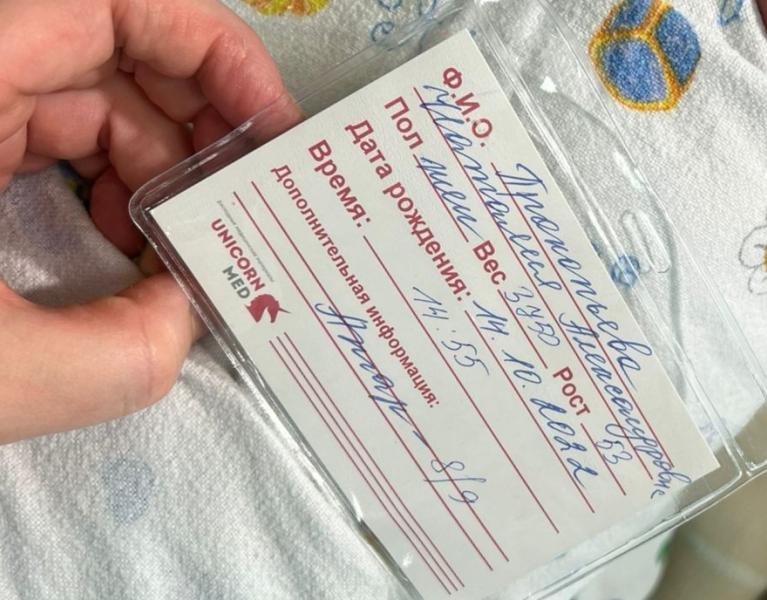 Ф.И.О. Прокопьева
Наталия Александровне
Пол жен Вес 3450 Рост 53
Дата рождения: 14.10.2022
Время: 14:55
Дополнительная информация:
Апгар - 8/9
UNICORN
MED